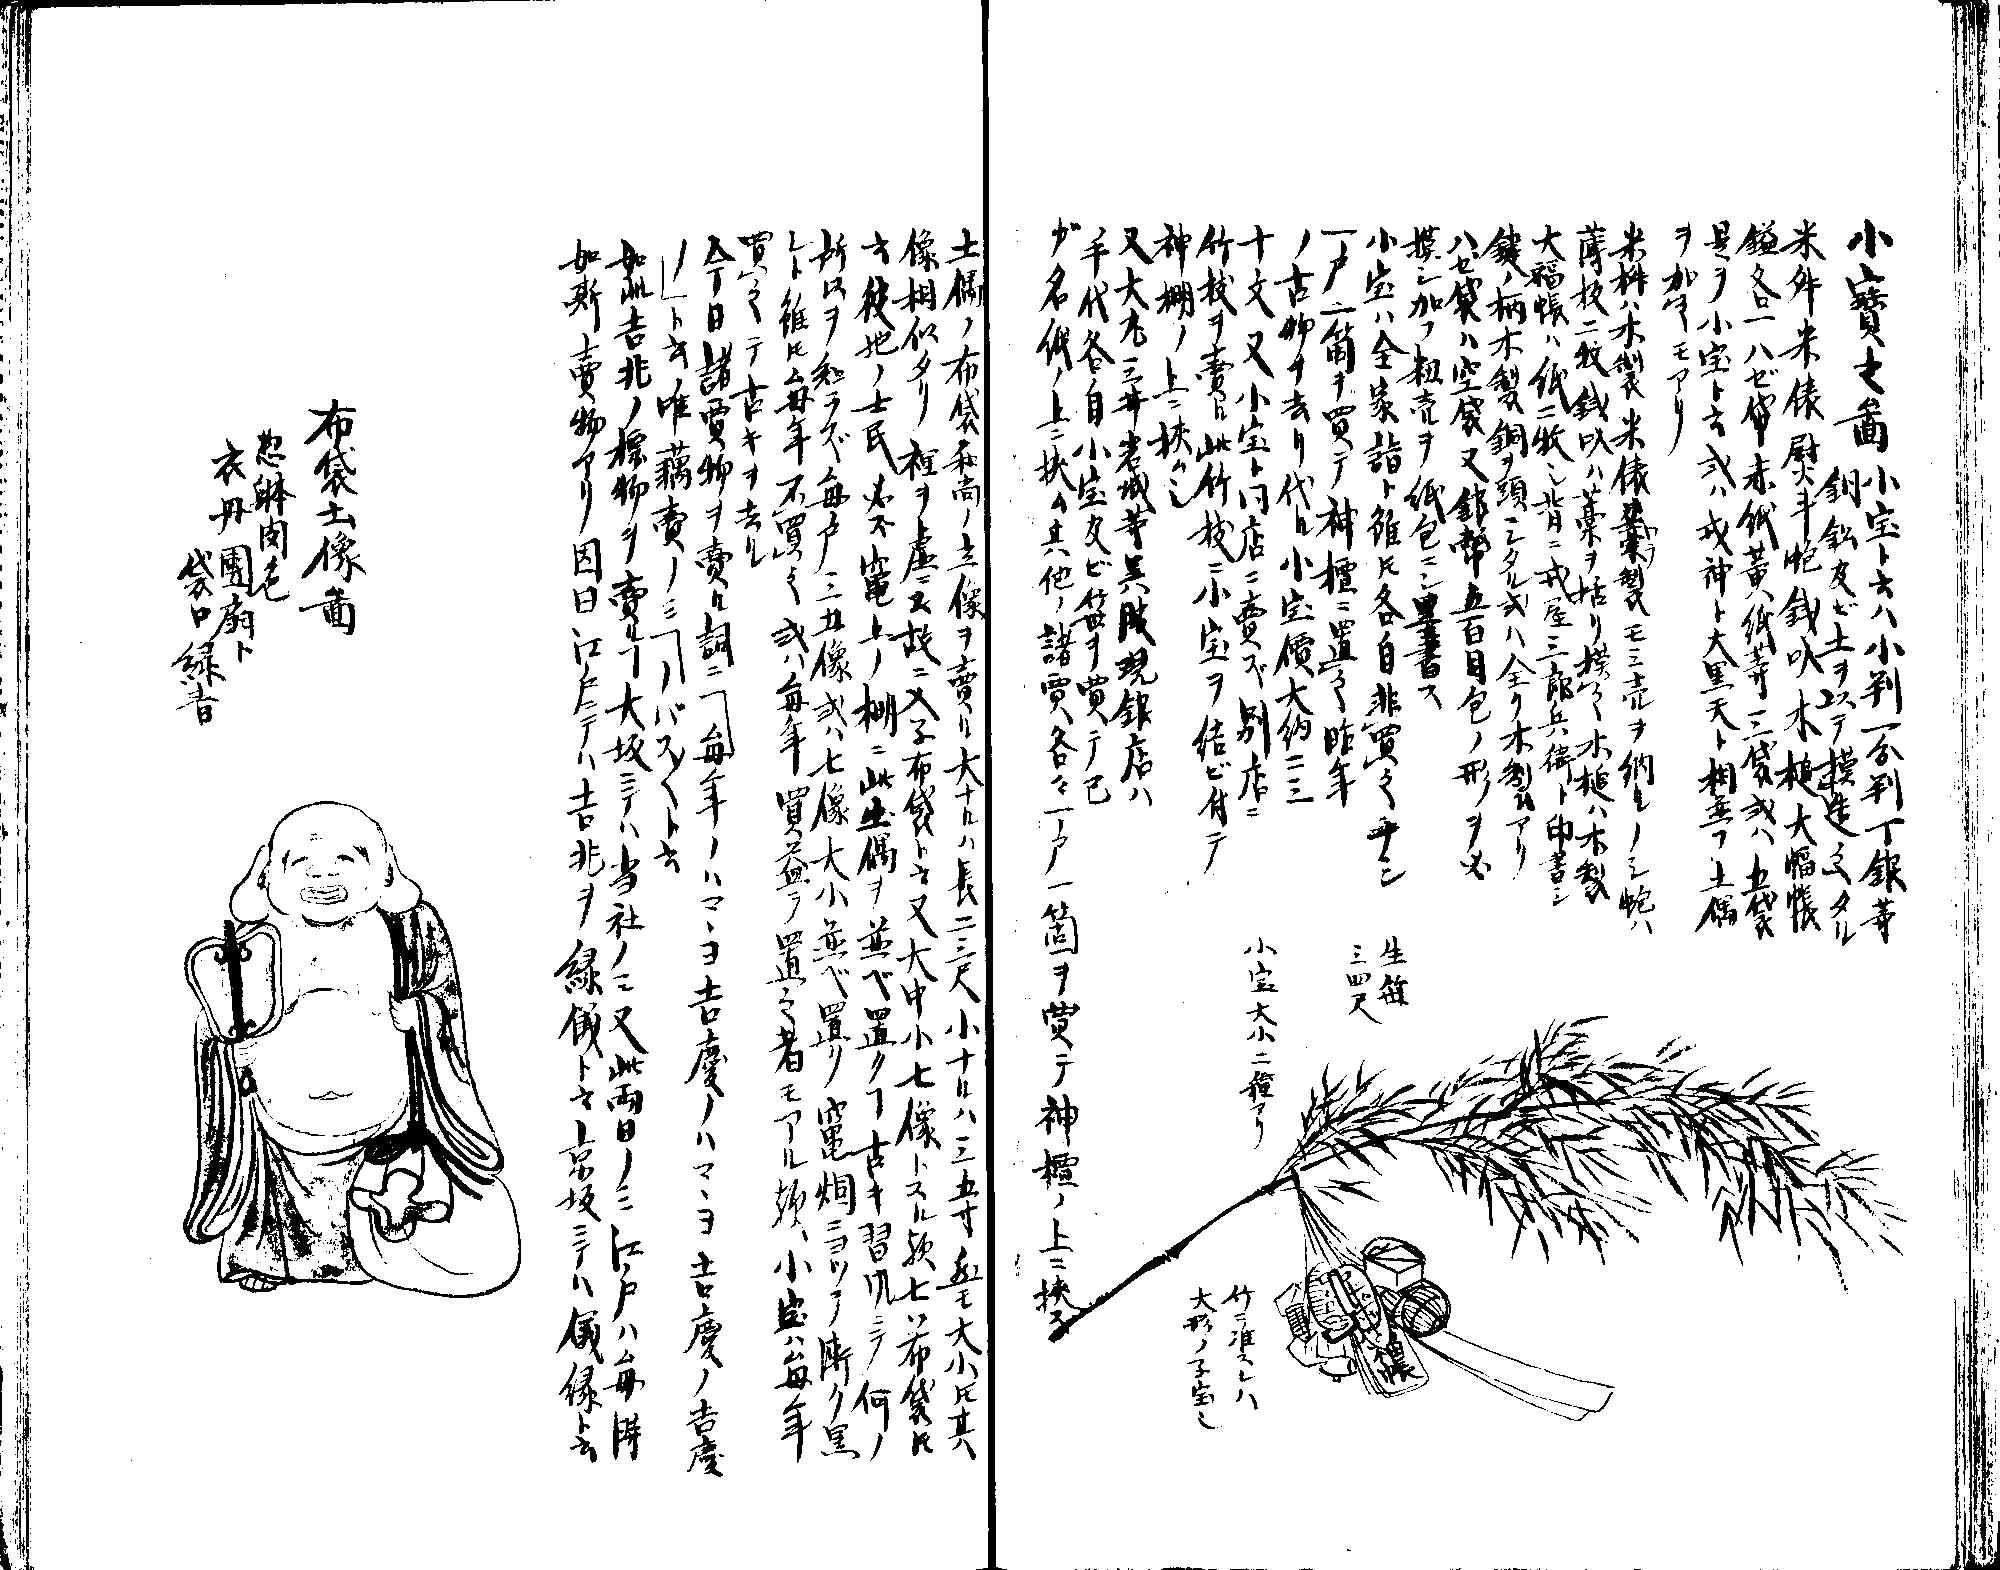 小寳之圖 小宝ト云ハ小判一分判丁銀等
銅鈆及ビ土ヲ以テ模造之タル
米舛米俵熨斗鮑銭叺木槌大幅帳
鎰各一ハゼ袋赤紙黄紙等三袋或ハ五袋
是ヲ小宝ト云或ハ戎神ト大黒天ト相並フ土偶
ヲ加フモアリ
米桝ハ木製米俵藁製モミ売ヲ納ルノミ鮑ハ
薄板二枚銭叺ハ藁ヲ括リ模之木槌ハ木製
大福帳ハ紙二枚ニ背ニ戎屋三郎兵衛ト印書ニ
鍵ノ柄木製銅ヲ頭ニタル或ハ全ク木製アリ
ハゼ袋ハ空袋又銀幣五百目包ノ形ヲ必
模シ加フ粗売ヲ紙包ニシ墨書ス
小宝ハ全家詣ト雖氏各自非買之
一戸一箇ヲ買テ神檀ニ置之昨年
ノ古物ヲ去リ代ル小宝價大約二三
十文又小宝ト同店ニ賣ズ別店ニ
竹枝ヲ賣ル此竹枝ニ小宝ヲ結ビ付テ
神棚ノ上ニ挾ム也
又大丸三井岩城等呉服現銀店ハ
手代各自小宝及ビ笹ヲ買テ己
ガ名紙ノ上ニ挾ム其他ノ諸賈各々一戸一箇ヲ買テ神檀ノ上ニ挾之
生笹
三四尺
小宝大小二種アリ
竹ニ准スレハ
大形ノ子宝也
土偶ノ布袋和尚ノ立像ヲ賣ル大ナルハ長二三尺小ナルハ三五寸無モ大小氏其
像相似タリ 袒ヲ虚ニス故ニ又子布袋ト云又大中小七像トスル故七ツ布袋氏
云彼地ノ士民必ズ竈上ノ棚ニ此土偶ヲ並ベ置クヿ古キ習風ニテ何ノ
所以ヲ知ラズ毎戸三五像或ハ七像大小並ベ置ク竈烟ニヨリテ漸ク黒
ト雖氏毎年不買之或ハ毎年買益ヲ置之者モアル故、小宝ハ毎年
買之テ古キヲ去ル
今日諸買物ヲ賣ル詞ニ「毎年ノハマヽヨ吉慶ノハマヽヨ吉慶ノ吉慶
ノ」ト云唯藕賣ノミ「ノバス〱ト云
如此吉兆ノ標物ヲ賣ルヿ大坂ニテハ当社ノミ又此両日ノミ江戸ハ毎時
如斯賣物アリ因曰江戸ニテハ吉兆ヲ縁儀ト云京坂ニテハ儀縁ト云
布袋土像圖
惣躰肉色
衣丹團扇ト
袋口緑青